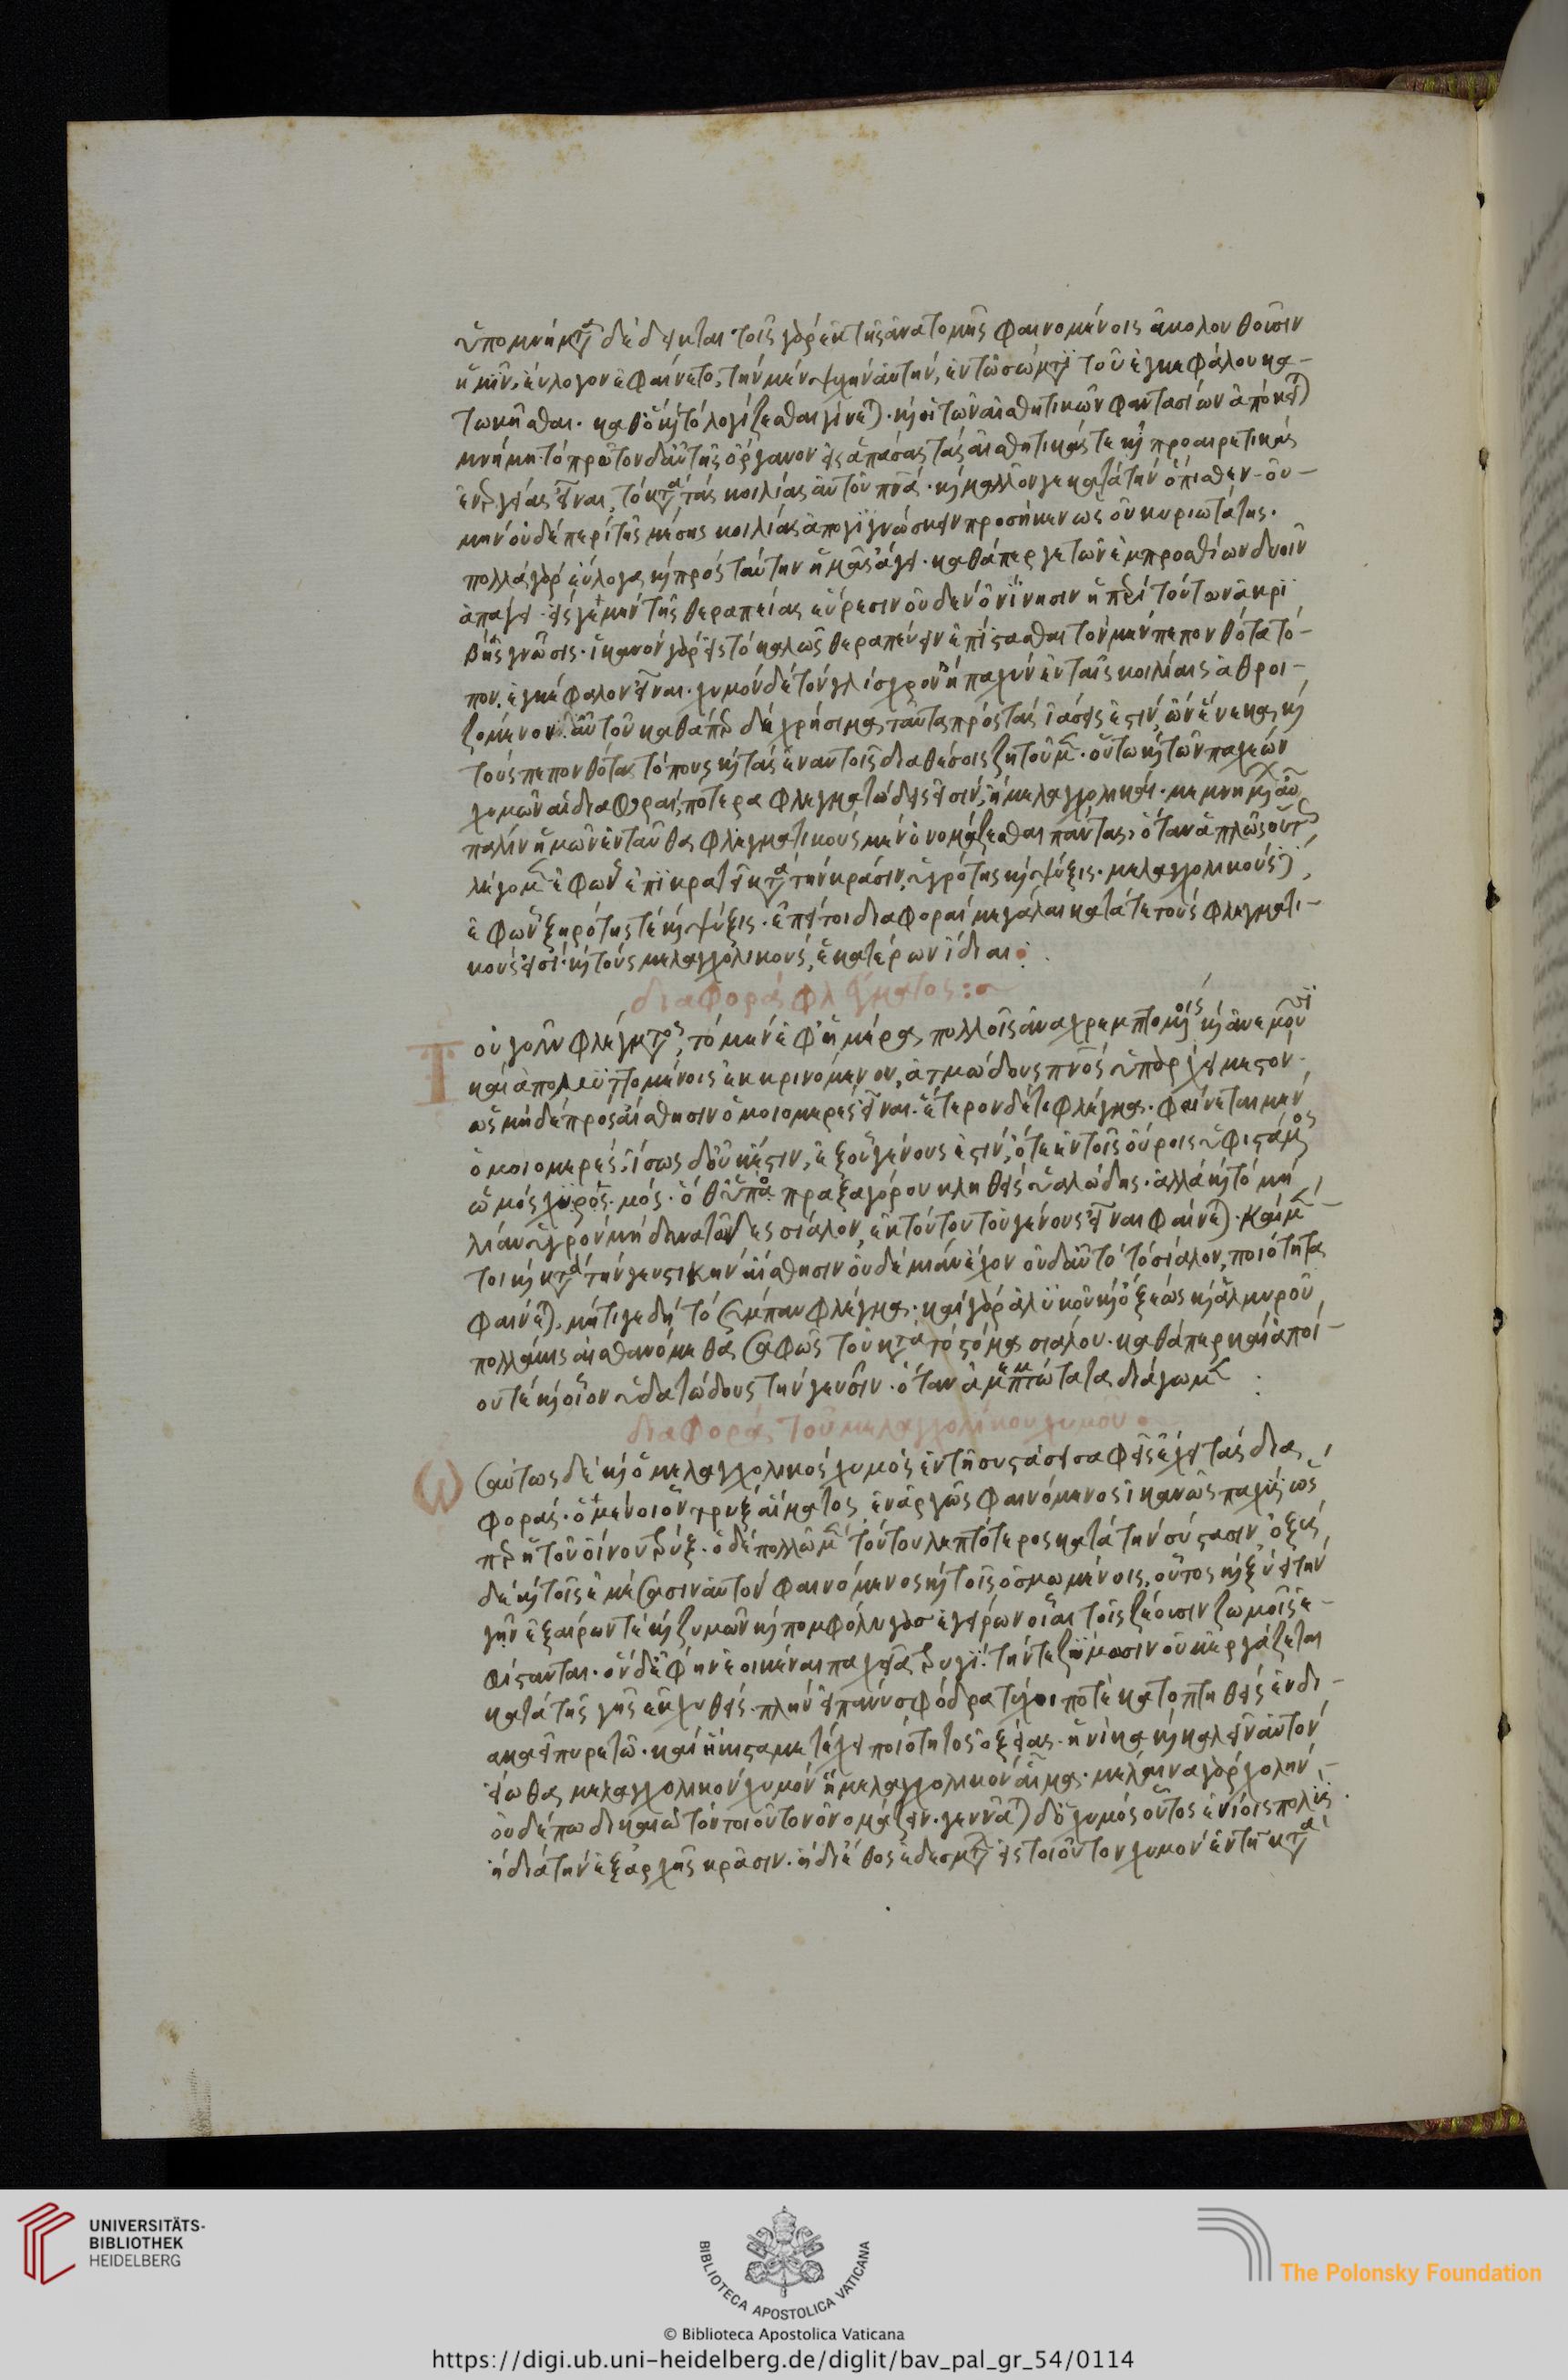 ὑπομνήματα δέδεικται τοῖς γὰρ ἐκ τῆς ἀνατομῆς φαινομένοις ἀκολουθοῦσιν
ἡμῖν, εὔλογον ἐφαίνετο, τὴν μὲν ψυχὴν αὐτὴν, ἐν τῷ σώματι τοῦ ἐγκεφάλου κα-
τωκῆσθαι. καθὸ καὶ τὸ λογίζεσθαι γίνεται. καὶ ἡ τῶν αἰσθητικῶν φαντασιῶν ἀπόκειται
μνήμη. τὸ πρῶτον δ' αὐτῆς ὄργανον εἰς ἁπάσας τὰς αἰσθητικάς τε καὶ προαιρετικὰς
ἐνεργείας εἶναι, τὸ κατὰ τὰς κοιλίας αὐτοῦ πνεῦμα. καὶ μᾶλλόν γε κατὰ τὴν ὄπισθεν. οὐ
μὴν οὐδὲ περὶ τῆς μέσης κοιλίας ἀπογιγνώσκειν προσήκεν ὡς οὐ κυριωτάτης.
πολλὰ γὰρ εὔλογα καὶ πρὸς ταύτην ἡμᾶς ἄγει. καθάπερ γε τῶν ἐμπροσθίων δυοῖν
ἀπάγει. εἰς γε μὴν τῆς θεραπείας εὕρεσιν οὐδὲν ὀνίνησιν ἡ περὶ τούτων ἀκρι
βὴς γνῶσις. ἱκανὸν γὰρ εἰς τὸ καλῶς θεραπεύειν ἐπίστασθαι τὸν μὲν πεπονθότα τό-
πον, ἐγκέφαλον εἶναι. χυμὸν δὲ τὸν γλίσχρον ἢ παχὺν ἐν ταῖς κοιλίαις ἀθροι-
ζόμενον αὐτοῦ καθάπερ δὲ χρήσιμα ταῦτα πρὸς τὰς ἰάσεις ἐστίν, ὧν ἕνεκα καὶ
τοὺς πεπονθότας τόπους καὶ τὰς ἐν αὐτοῖς διαθέσεις ζητοῦμεν. οὕτω καὶ τῶν παχέων
χυμῶν αἱ διαφοραὶ, πότερα φλεγματώδεις εἰσίν, ἢ μελαγχολικοί.
πάλιν ἡμῶν ἐνταῦθα φλεγματικοὺς μὲν ὀνομάζεσθαι πάντας, ὅταν ἁπλῶς οὕτω
λέγομεν ἐφ' ὧν ἐπικρατεῖ κατὰ τὴν κρᾶσιν, ὑγρότης καὶ ψύξις. μελαγχολικοὺς δὲ,
ἐφ' ὧν ξηρότης τὲ καὶ ψύξις. ἐπεί τοι διαφοραὶ μεγάλαι κατά τε τοὺς φλεγματι-
κοὺς εἰσὶ καὶ τοὺς μελαγχολικοὺς, ἑκατέρων ἴδιαι:
διαφορὰς φλέγματος:~
Τοῦ γοῦν φλέγματος, τὸ μὲν ἐφ' ἡμέρᾳ πολλοῖς ἀναχρεμπτομένοις καὶ ἀνεμοῦσι
καὶ ἀπομυττομένοις ἐκκρινόμενον, ἀτμώδους πνεύματος ὑπάρχει μεστόν.
ὡς μηδὲ πρὸς αἴσθησιν ὁμοιομερὲς εἶναι. ἕτερον δέ τι φλέγμα. φαίνεται μὲν
ὁμοιομερὲς, ἴσως δ' οὐκ ἔστιν, ἐξ οὗ γένους ἐστίν, ὅ τε ἐν τοῖς οὔροις ὑφιστάμενος
ὠμὸς χυμός. ὅ θ' ὑπὸ πραξαγόρου κληθεὶς ὑαλώδης. ἀλλὰ καὶ τὸ μὴ
λίαν ὑγρὸν μὴ δ' ὑδατῶδες σίαλον, ἐκ τούτου τοῦ γένους εἶναι φαίνεται. καὶ μέν-
τοι καὶ κατὰ τὴν γευστικὴν αἴσθησιν οὐδεμίαν ἔχον οὐδ' αὐτὸ τὸ σίαλον, ποιότητα
φαίνεται. μήτι γε δὴ τὸ σύμπαν φλέγμα. καὶ γὰρ ἁλυκοῦ καὶ ὀξέως καὶ ἁλμυροῦ
πολλάκις αἰσθανόμεθα σαφῶς τοῦ κατὰ τὸ στόμα σιάλου. καθάπερ καὶ ἀποί-
ου τὲ καὶ οἷον ὑδατώδους τὴν γεῦσιν. ὅταν ἀμεμπτώτατα διάγωμεν:
διαφορὰς τοῦ μελαγχολικοῦ χυμοῦ.
Ὡσαύτως δὲ καὶ ὁ μελαγχολικὸς χυμὸς ἐν τῇ συστάσει σαφεῖς ἔχει τὰς δια
φοράς. ὁ μὲν οἷον τρὺξ αἵματος, ἐναργῶς φαινόμενος ἱκανῶς παχὺς ὥσ
περ ἡ τοῦ οἴνου τρύξ. ὁ δὲ πολλῷ μὲν τούτου λεπτότερος κατὰ τὴν σύστασιν, ὀξὺς
δὲ καὶ τοῖς ἐμέσασιν αὐτὸν φαινόμενος καὶ τοῖς ὀσμωμένοις, οὗτος καὶ ξύει τὴν
γῆν ἐξαίρων τὲ καὶ ζυμῶν καὶ πομφόλυγας ἐγείρων οἷαι τοῖς ζέουσιν ζωμοῖς ἐ-
φίστανται. ὃν δ' ἔφην ἐοικέναι παχείᾳ τρυγὶ. τήν τε ζύμωσιν οὐκ ἐργάζεται
κατὰ τῆς γῆς ἐκχυθείς. πλὴν εἰ πάνυ σφόδρα τύχοι ποτὲ κατοπτηθεὶς ἐν δι-
ακαεῖ πυρετῷ. καὶ ἥκιστα μετέχει ποιότητος ὀξείας. ἡνίκα καὶ καλεῖν αὐτὸν
εἴωθα μελαγχολικὸν χυμὸν ἢ μελαγχολικὸν αἷμα. μέλαιναν γὰρ χολὴν,
οὐδέπω δικαιῶ τὸν τοιοῦτον ὀνομάζειν. γεννᾶται δ' ὁ χυμὸς οὗτος ἐνίοις πολὺς.
ἢ διὰ τὴν ἐξ ἀρχῆς κρᾶσιν. ἢ δι' ἔθος ἐδεσμάτων εἰς τοιοῦτον χυμὸν ἐν τῇ κατὰ
UNIVERSITÄTS-
BIBLIOTHEK
HEIDELBERG
BIBLIOTECA APOSTOLICA VATICANA
The Polonsky Foundation
© Biblioteca Apostolica Vaticana
https://digi.ub.uni-heidelberg.de/diglit/bav_pal_gr_54/0114